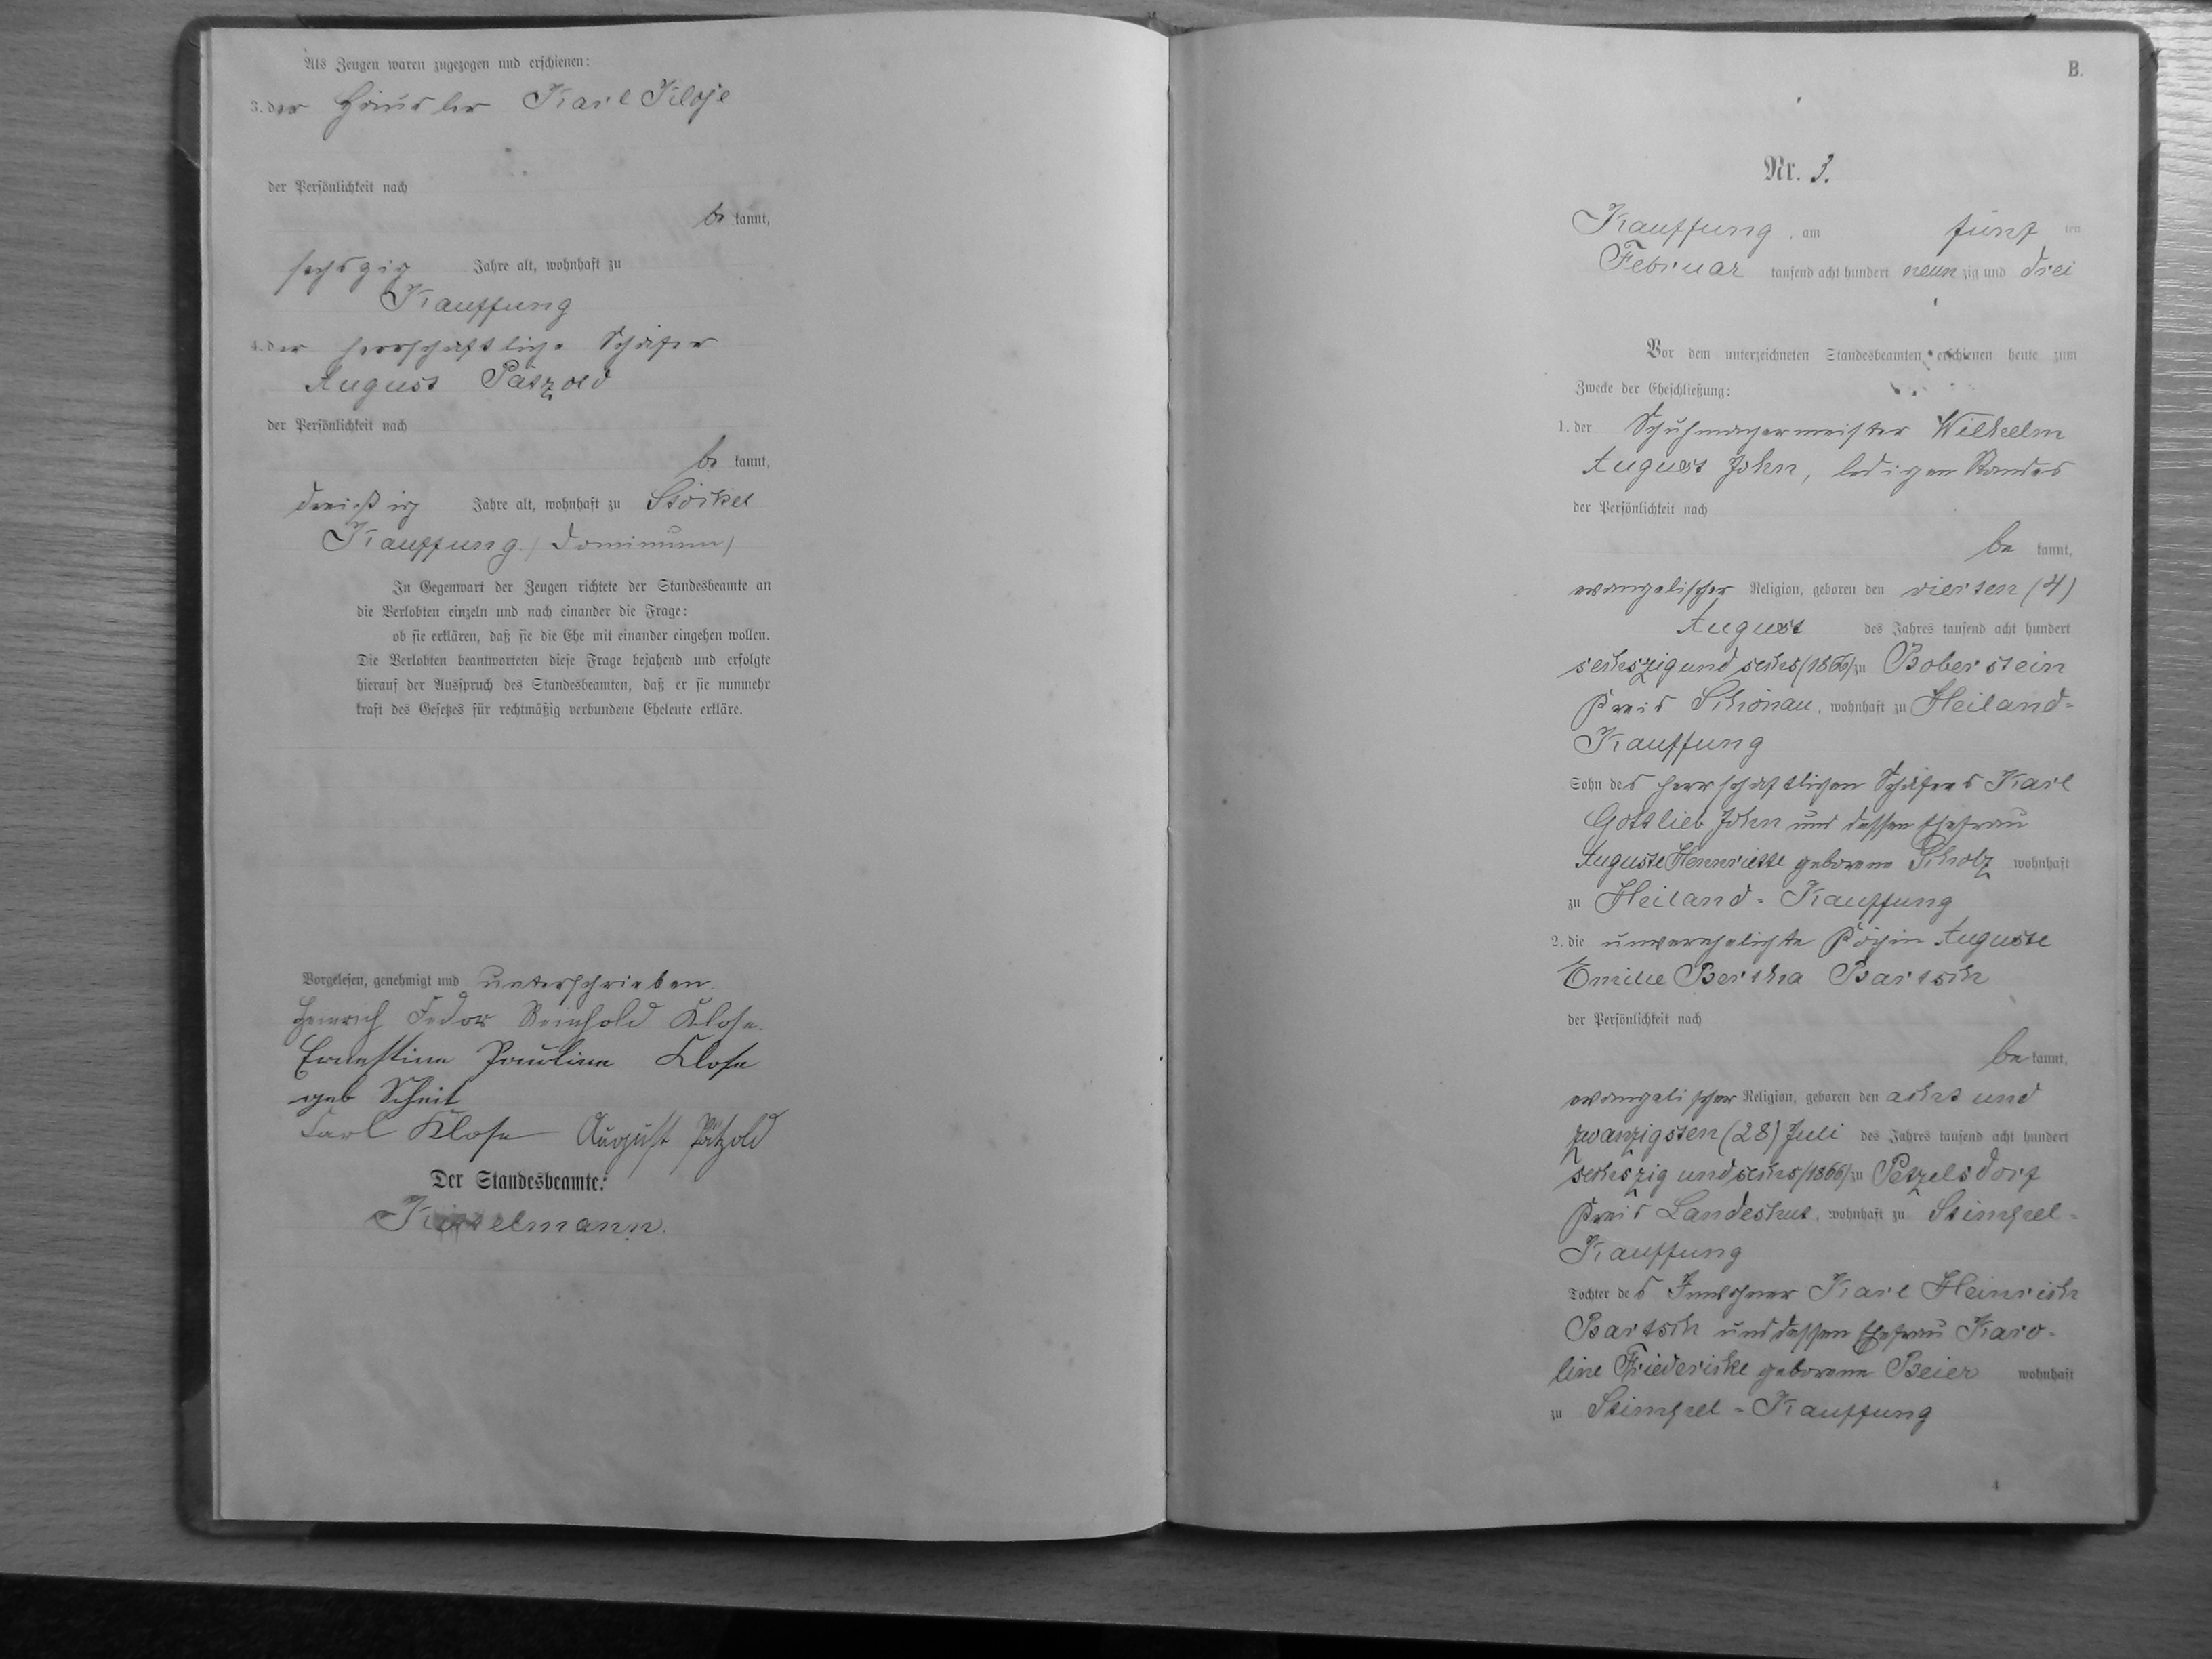 Als Zeugen waren zugezogen und erschienen:
3. der Häusler Karl Klose
der Persönlichkeit nach
be kannt,
sechszig Jahre alt, wohnhaft zu
Kauffung
4. der herrschaftliche Schäfer
August Pätzold
der Persönlichkeit nach
be kannt,
dreißig Jahre alt, wohnhaft zu Stöckel
Kauffung (Dominium)
In Gegenwart der Zeugen richtete der Standesbeamte an
die Verlobten einzeln und nach einander die Frage:
ob sie erklären, daß sie die Ehe mit einander eingehen wollen.
Die Verlobten beantworteten diese Frage bejahend und erfolgte
hierauf der Ausspruch des Standesbeamten, daß er sie nunmehr
kraft des Gesetzes für rechtmäßig verbundene Eheleute erkläre.
Vorgelesen, genehmigt und unterschrieben.
Heinrich Fedor Reinhold Klose.
Ernestine Pauline Klose
geb Scheit
Carl Klose August Pätzold
Der Standesbeamte:
B.
Nr. 3.
Kauffung, am fünf ten
Februar tausend acht hundert neun zig und drei
Vor dem unterzeichneten Standesbeamten erschienen heute zum
Zwecke der Eheschließung:
1. der Schuhmachermeister Wilhelm
August John, ledigen Standes
der Persönlichkeit nach
be kannt,
evangelischer Religion, geboren den vierten (4)
August des Jahres tausend acht hundert
sechszig und sechs (1866) zu Boberstein
Kreis Schönau, wohnhaft zu Heiland-
Kauffung
Sohn des herrschaftlichen Schäfers Karl
Gottlieb John und dessen Ehefrau
Auguste Henriette geborene Scholz wohnhaft
zu Heiland-Kauffung
2. die unverehelichte Köchin Auguste
Emilie Bertha Bartsch
der Persönlichkeit nach
be kannt,
evangelischer Religion, geboren den acht und
zwanzigsten (28) Juli des Jahres tausend acht hundert
sechszig und sechs (1866) zu Petzelsdorf
Kreis Landeshut, wohnhaft zu Stimpel-
Kauffung
Tochter des Inwohner Karl Heinrich
Bartsch und dessen Ehefrau Karo-
line Friedericke geborene Beier wohnhaft
zu Stimpel-Kauffung
4